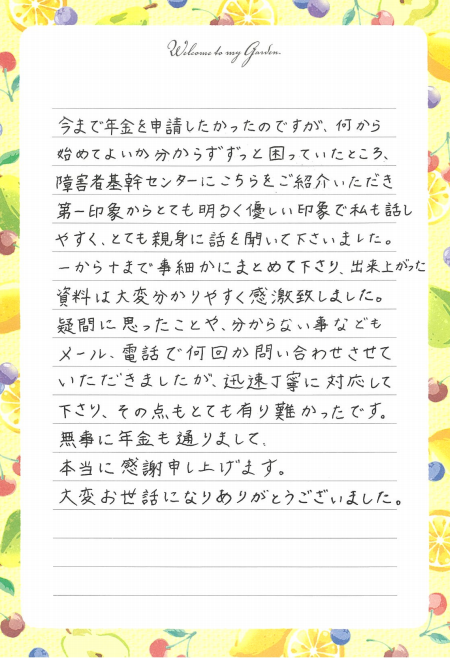 Welcome to my Garden.
今まで年金を申請したかったのですが、何から
始めてよいか分からずずっと困っていたところ、
障害者基幹センターにこちらをご紹介いただき
第一印象からとても明るく優しい印象で私も話し
やすく、とても親身に話を聞いて下さいました。
一から十まで事細かにまとめて下さり、出来上がった
資料は大変分かりやすく感激致しました。
疑問に思ったことや、分からない事なども
メール、電話で何回か問い合わせさせて
いただきましたが、迅速丁寧に対応して
下さり、その点もとても有り難かったです。
無事に年金も通りまして、
本当に感謝申し上げます。
大変お世話になりありがとうございました。